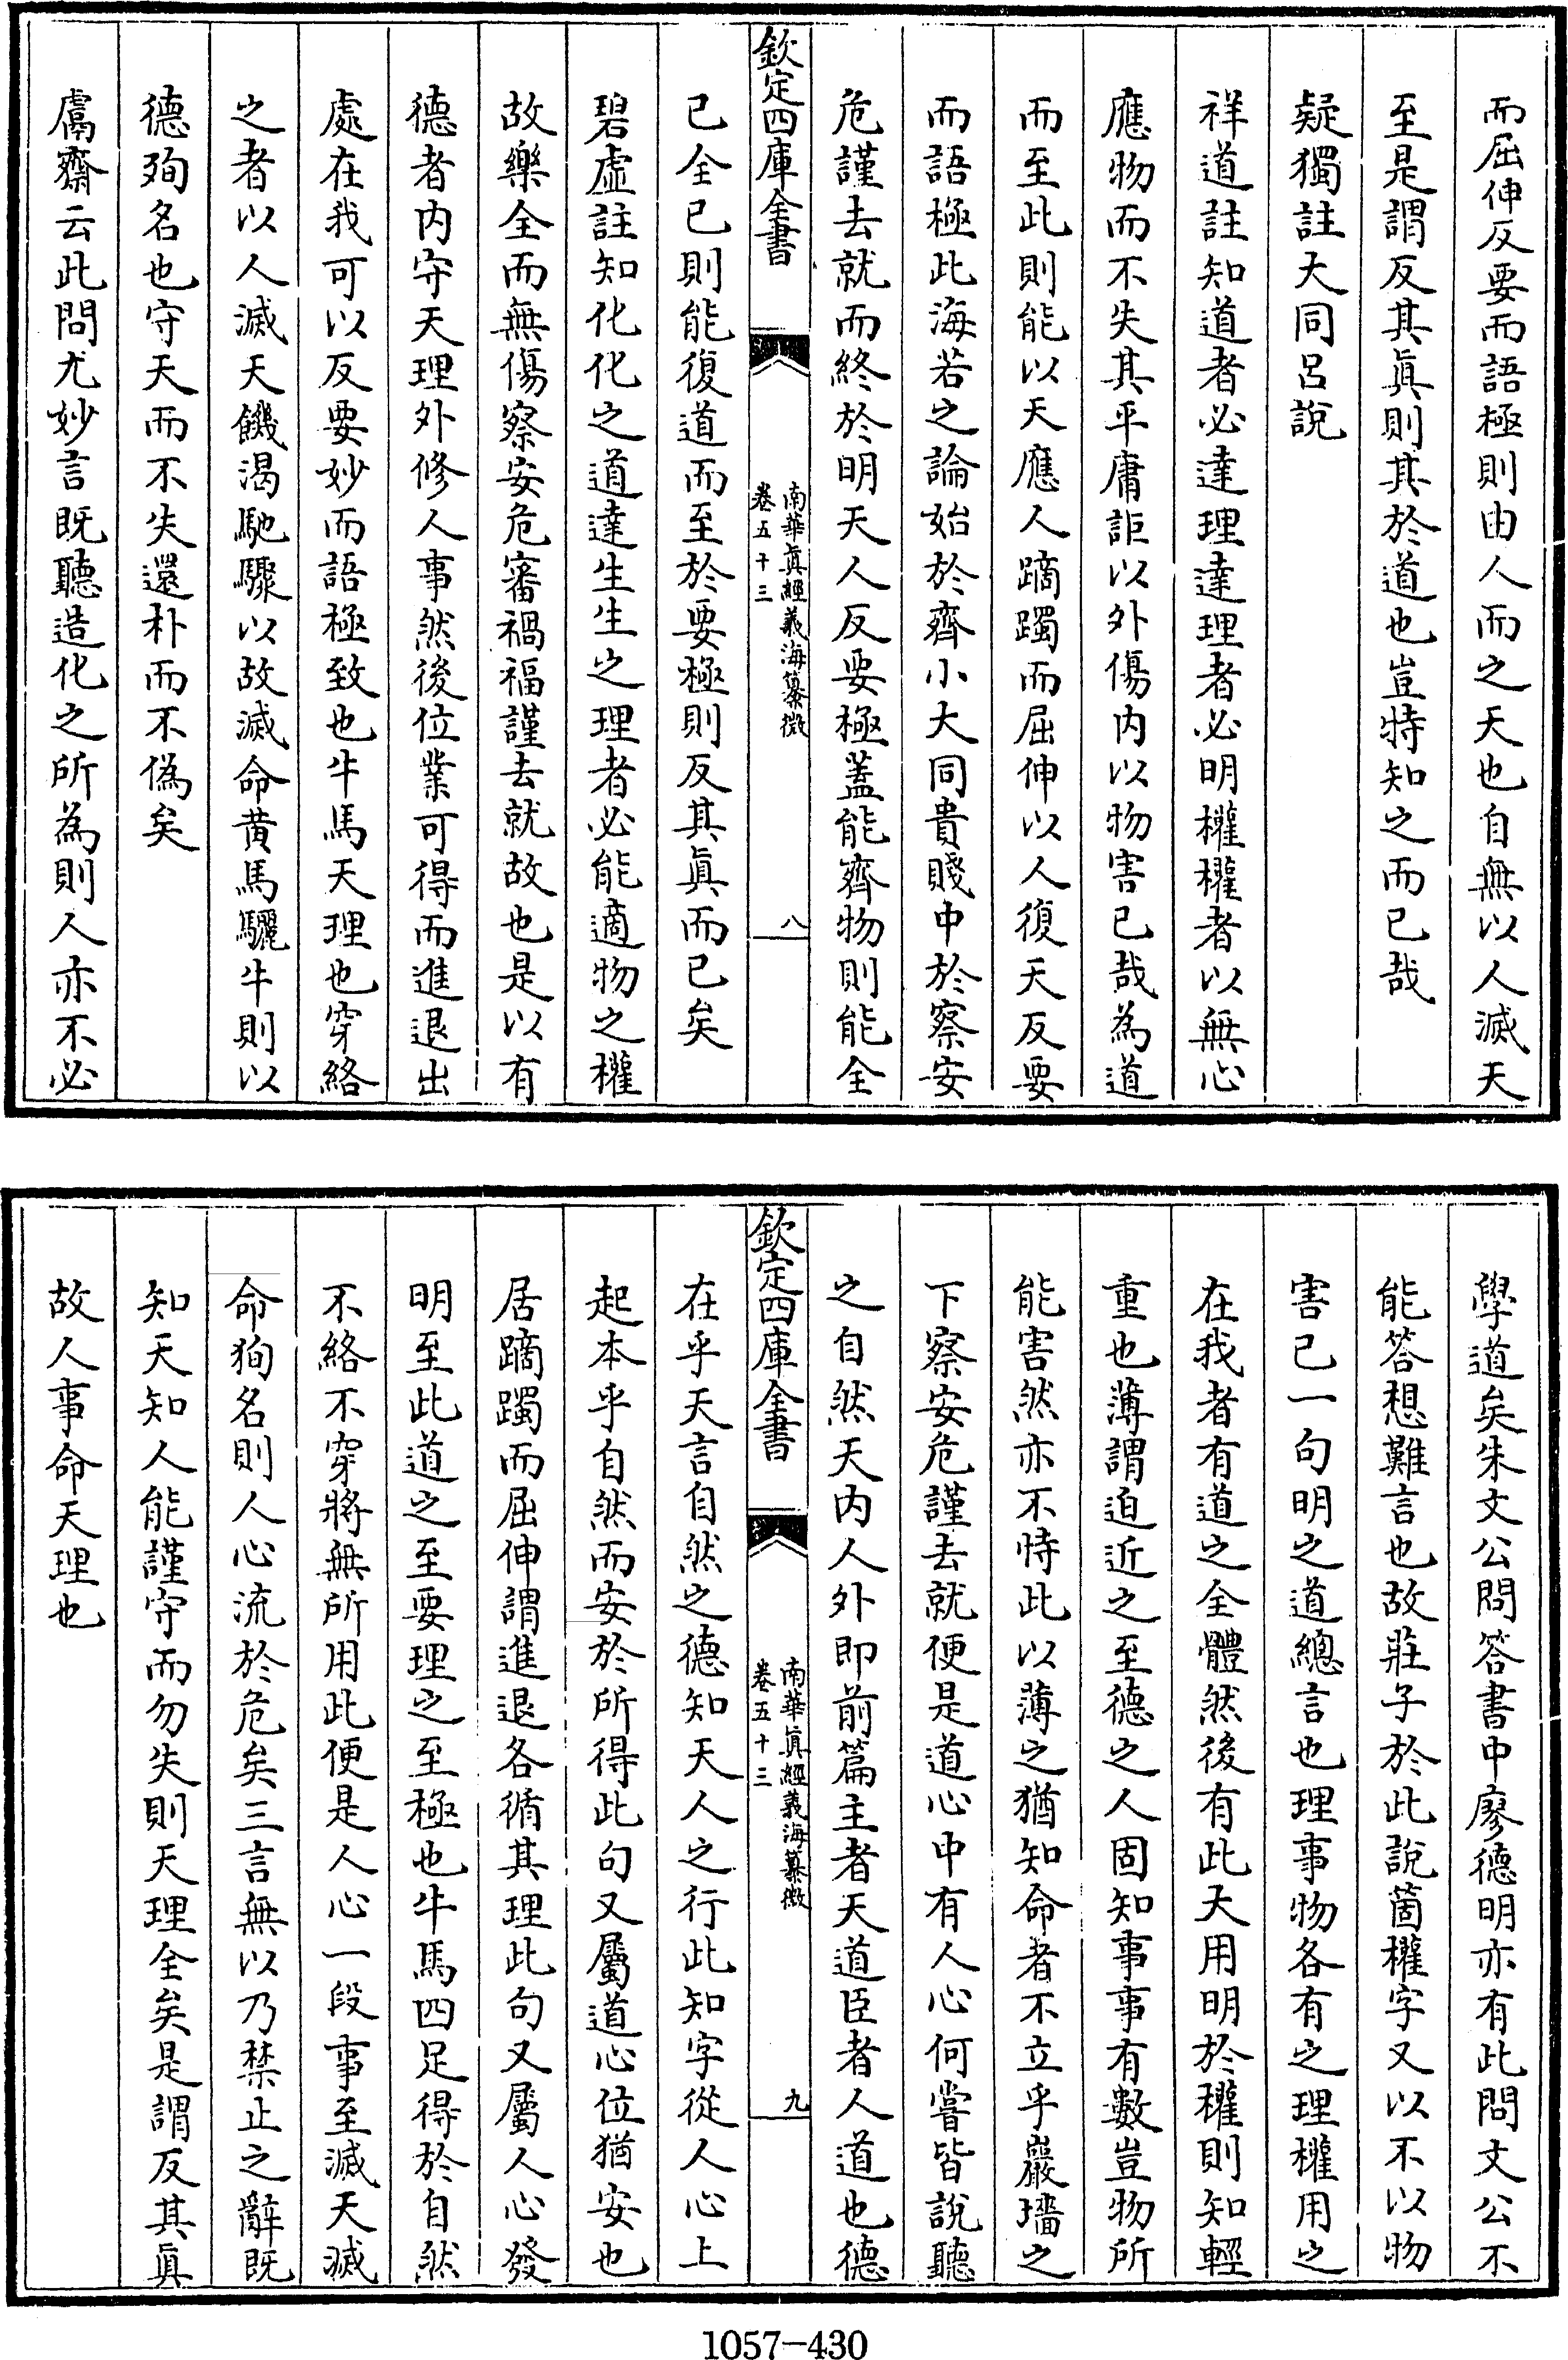 而屈伸反要而語極則由人而之天也自無以人滅天
至是謂反其眞則其於道也豈特知之而已哉
疑獨註大同呂說
祥道註知道者必達理達理者必明權權者以無心
應物而不失其平庸詎以外傷内以物害已哉為道
而至此則能以天應人蹢躅而屈伸以人復天反要
而語極此海若之論始於齊小大同貴賤中於察安
危謹去就而終於明天人反要極蓋能齊物則能全
欽定四庫全書
南華眞經義海纂微
卷五十三
八
已全已則能復道而至於要極則反其眞而已矣
碧虛註知化化之道達生生之理者必能適物之權
故樂全而無傷察安危審禍福謹去就故也是以有
德者内守天理外修人事然後位業可得而進退出
處在我可以反要妙而語極致也牛馬天理也穿絡
之者以人滅天饑渴馳驟以故滅命黄馬驪牛則以
德殉名也守天而不失還朴而不偽矣
鬳齋云此問尤妙言既聽造化之所為則人亦不必
學道矣朱文公問答書中廖德明亦有此問文公不
能答想難言也故莊子於此說箇權字又以不以物
害已一句明之道總言也理事物各有之理權用之
在我者有道之全體然後有此大用明於權則知輕
重也薄謂迫近之至德之人固知事事有數豈物所
能害然亦不恃此以薄之猶知命者不立乎巖墻之
下察安危謹去就便是道心中有人心何嘗皆說聽
之自然天内人外即前篇主者天道臣者人道也德
欽定四庫全書
南華眞經義海纂微
卷五十三
九
在乎天言自然之德知天人之行此知字從人心上
起本乎自然而安於所得此句又屬道心位猶安也
居蹢躅而屈伸謂進退各循其理此句又屬人心發
明至此道之至要理之至極也牛馬四足得於自然
不絡不穿將無所用此便是人心一段事至滅天滅
命狥名則人心流於危矣三言無以乃禁止之辭既
知天知人能謹守而勿失則天理全矣是謂反其眞
故人事命天理也
1057-430